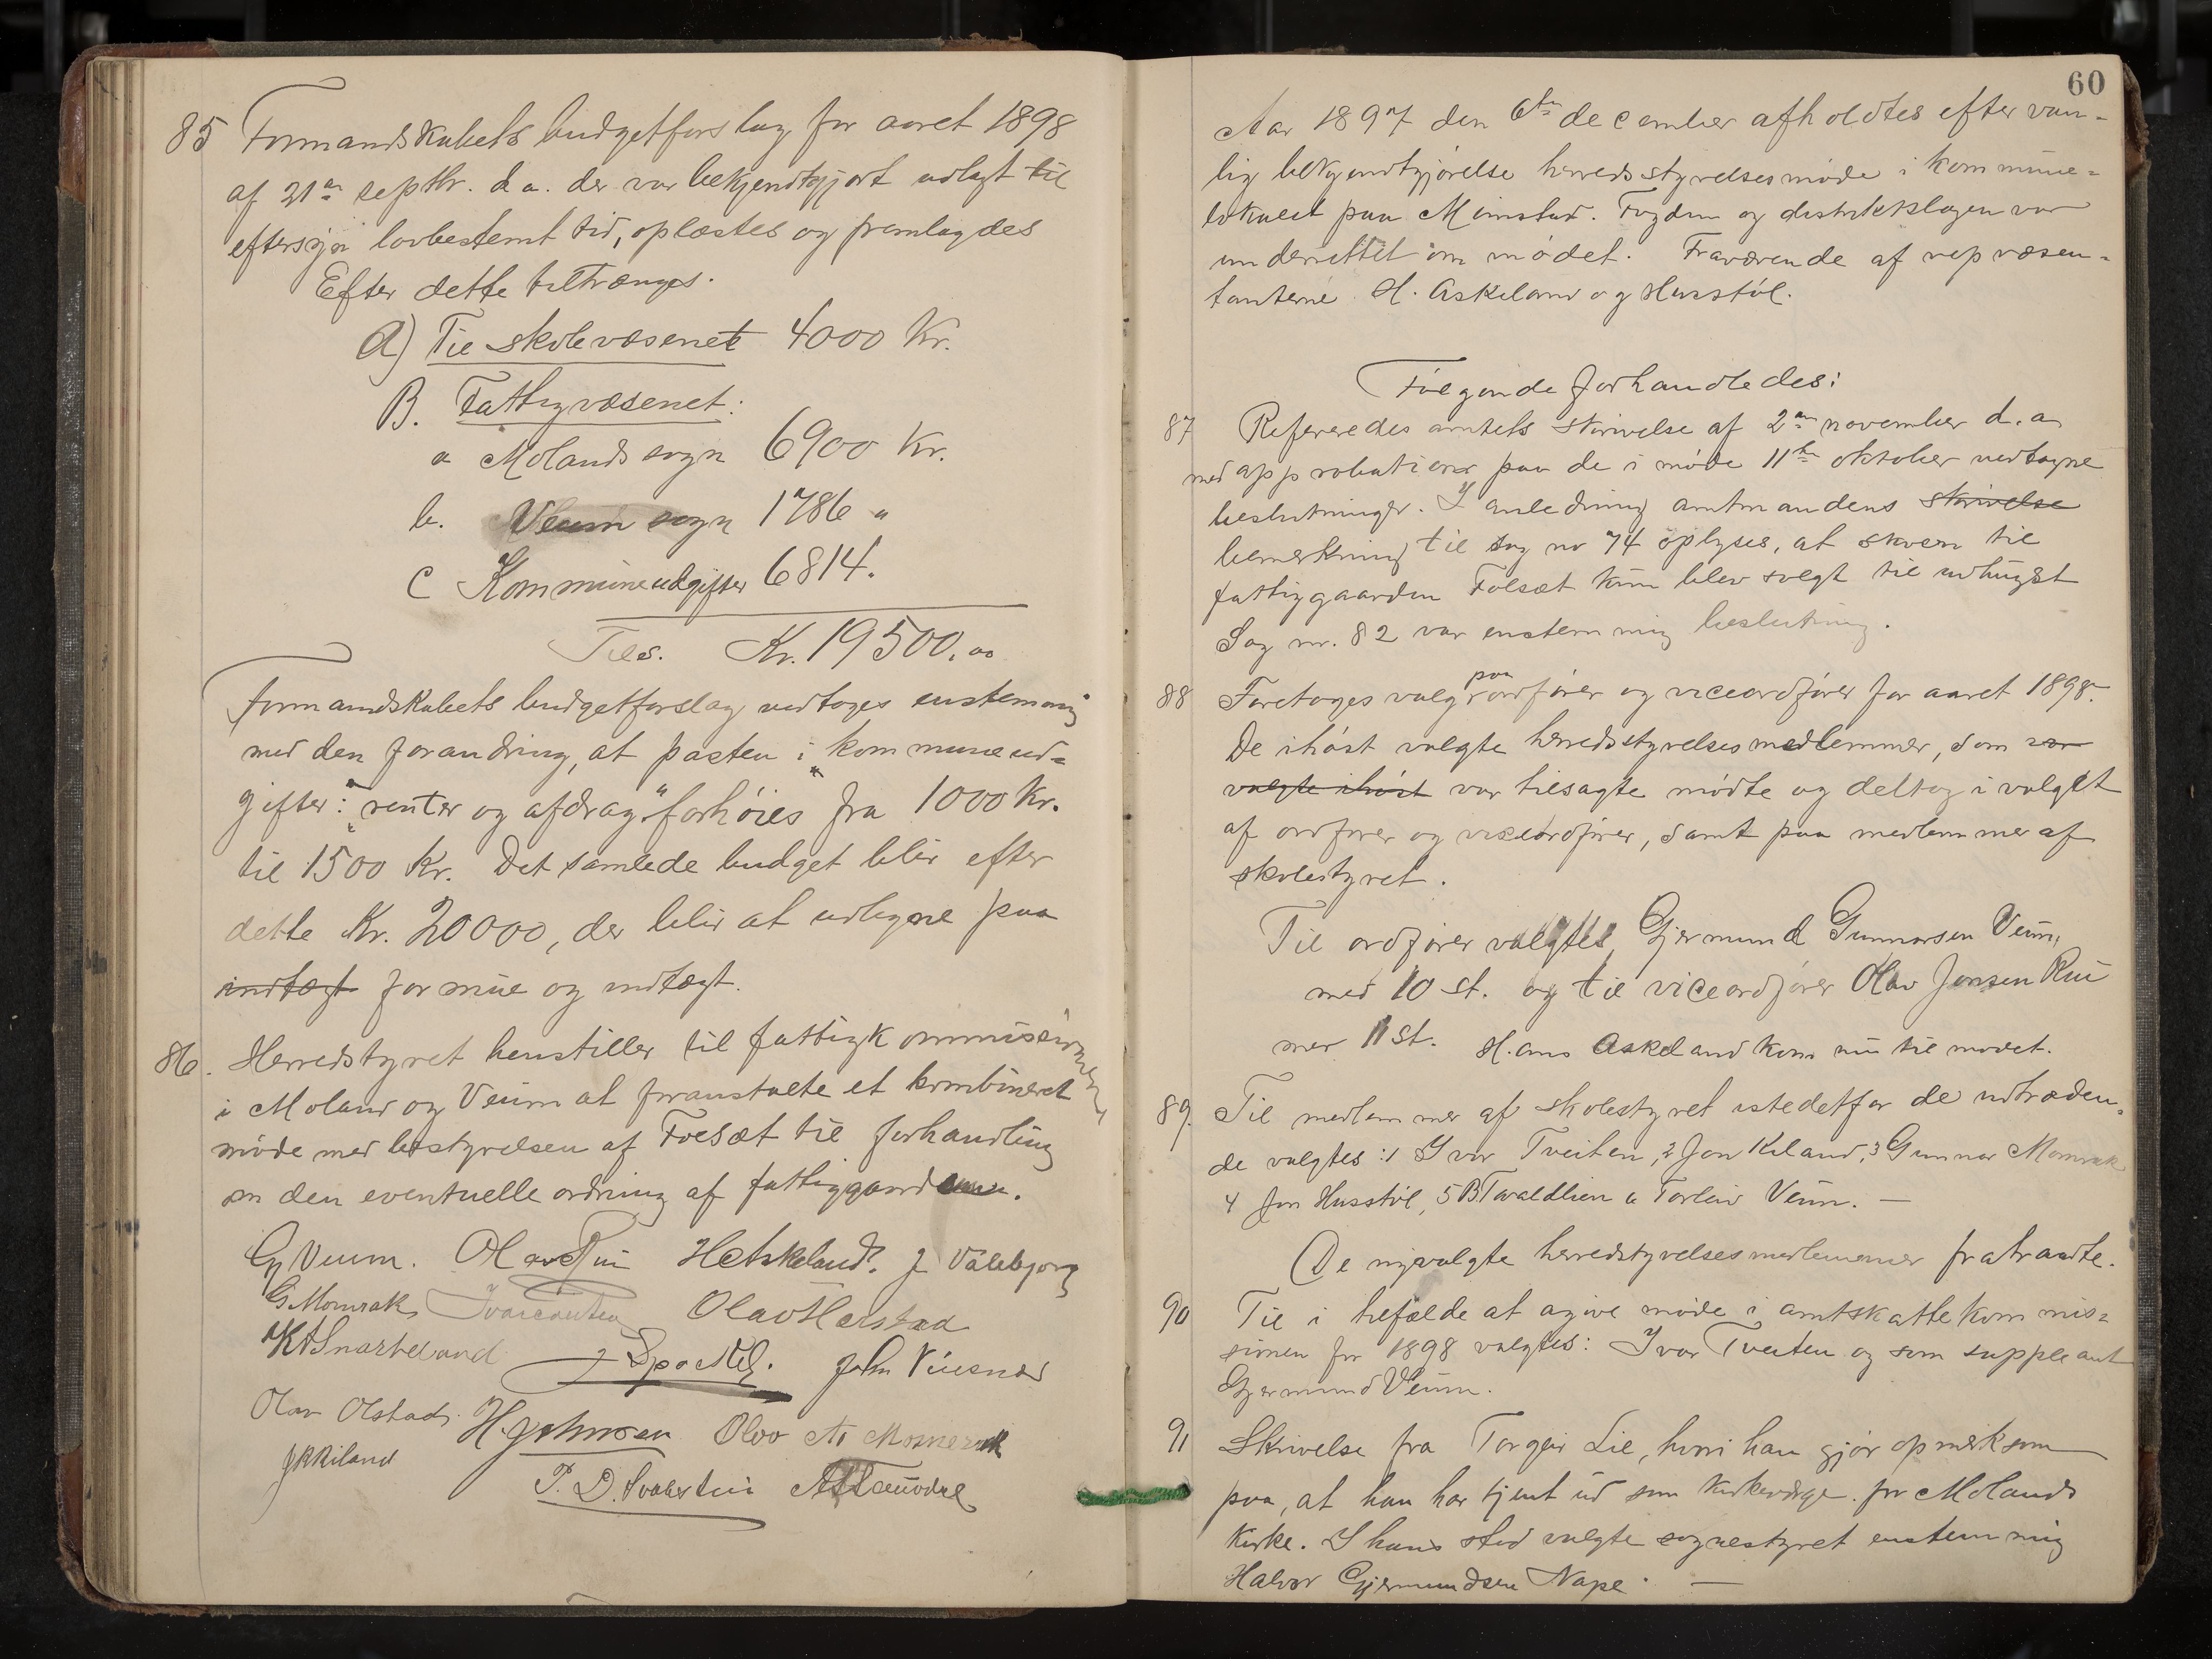 85 Formandskabets budgetforslag for aaret 1898
af 21de septbr. d. a. der var bekjendtgjort udlagt til
eftersyn lovbestemt tid, oplæstes og fremlagdes
Efter dette tiltrænges.
A) Til skolevæsenet 4000 Kr.
B. Fattigvæsenet:
a Molands sogn 6900 Kr.
b. Veum sogn 1786 "
C Kommuneudgifter 6814.
Tils. Kr. 19500,00
Formandskabets budgetforslag vedtoges enstemmig
med den forandring, at posten i "kommuneud-
gifter": "renter og afdrag" forhöies fra 1000 Kr.
til 1500 Kr. Det samlede budget blir efter
dette Kr. 20000, der blir at udligne paa
indtægt formue og indtægt.
86. Herredstyret henstiller til fattigkommissionen
i Moland og Veum at foranstalte et kombineret
möde med bestyrelsen af Folsæt til forhandling
om den eventuelle ordning af fattiggaarden.
Gj Veum. Olav Rui H Askeland. J Vaalebjorg
G Momrak Ivar Tveiten Olav Harstad
K A Snarteland J Spockeli. John Vinsnes
Olav Olstad. H. Johnsen Olav A. Momrak
J K Kiland P. D. A
60
Aar 1897 den 6te december afholdtes efter van-
lig bekjendtgjörelse herredsstyrelsesmöde i kommune-
lokalet paa Moenstad. Fogden og distriktslægen var
underrettet om mödet. Fraværende af repræsen-
tanterne H. Askeland og Husstöl.
Fölgende forhandledes:
87 Refereredes amtets skrivelse af 2den november d. a
med approbationer paa de i möde 11te oktober vedtagne
beslutninger. I anledning amtmandens skrivelse
bemerkning til sag no 74 oplyses, at skoven til
fattiggaarden Folsæt kun blev solgt til udhugst
Sag nr. 82 var enstemmig beslutning.
88 Foretoges valg paa ordförer og viceordförer for aaret 1898.
De i höst valgte herredsstyrelsesmedlemmer, som var
valgte i höst var tilsagte mödte og deltog i valget
af ordförer og viceordförer, samt paa medlemmer af
skolestyret.
Til ordförer valgtes Gjermund Gunnarsen Veum,
med 10 st. og til viceordförer Olav Jonsen Rui
med 11 st. Hans Askeland kom nu til mödet.
89. Til medlemmer af skolestyret istedetfor de udtræden-
de valgtes: 1 Ivar Tveiten, 2 Jon Kiland, 3 Gunnar Momrak
4 Jon Husstöl, 5 B Tvaldlien 6 Torleiv Veum. —
De nyvalgte herredstyrelsesmedlemmer fratraadte.
90 Til i tilfælde at agive möde i amtskattekommis-
sionen for 1898 valgtes: Ivar Tveiten og som suppleant
Gjermund Veum.
91 Skrivelse fra Torgeir Lie, hvori han gjör opmerksom
paa, at han har tjent ud som kirkeverge for Molands
kirke. I hans sted valgte sognestyret enstemmig
Halvor Gjermundsen Nape. —